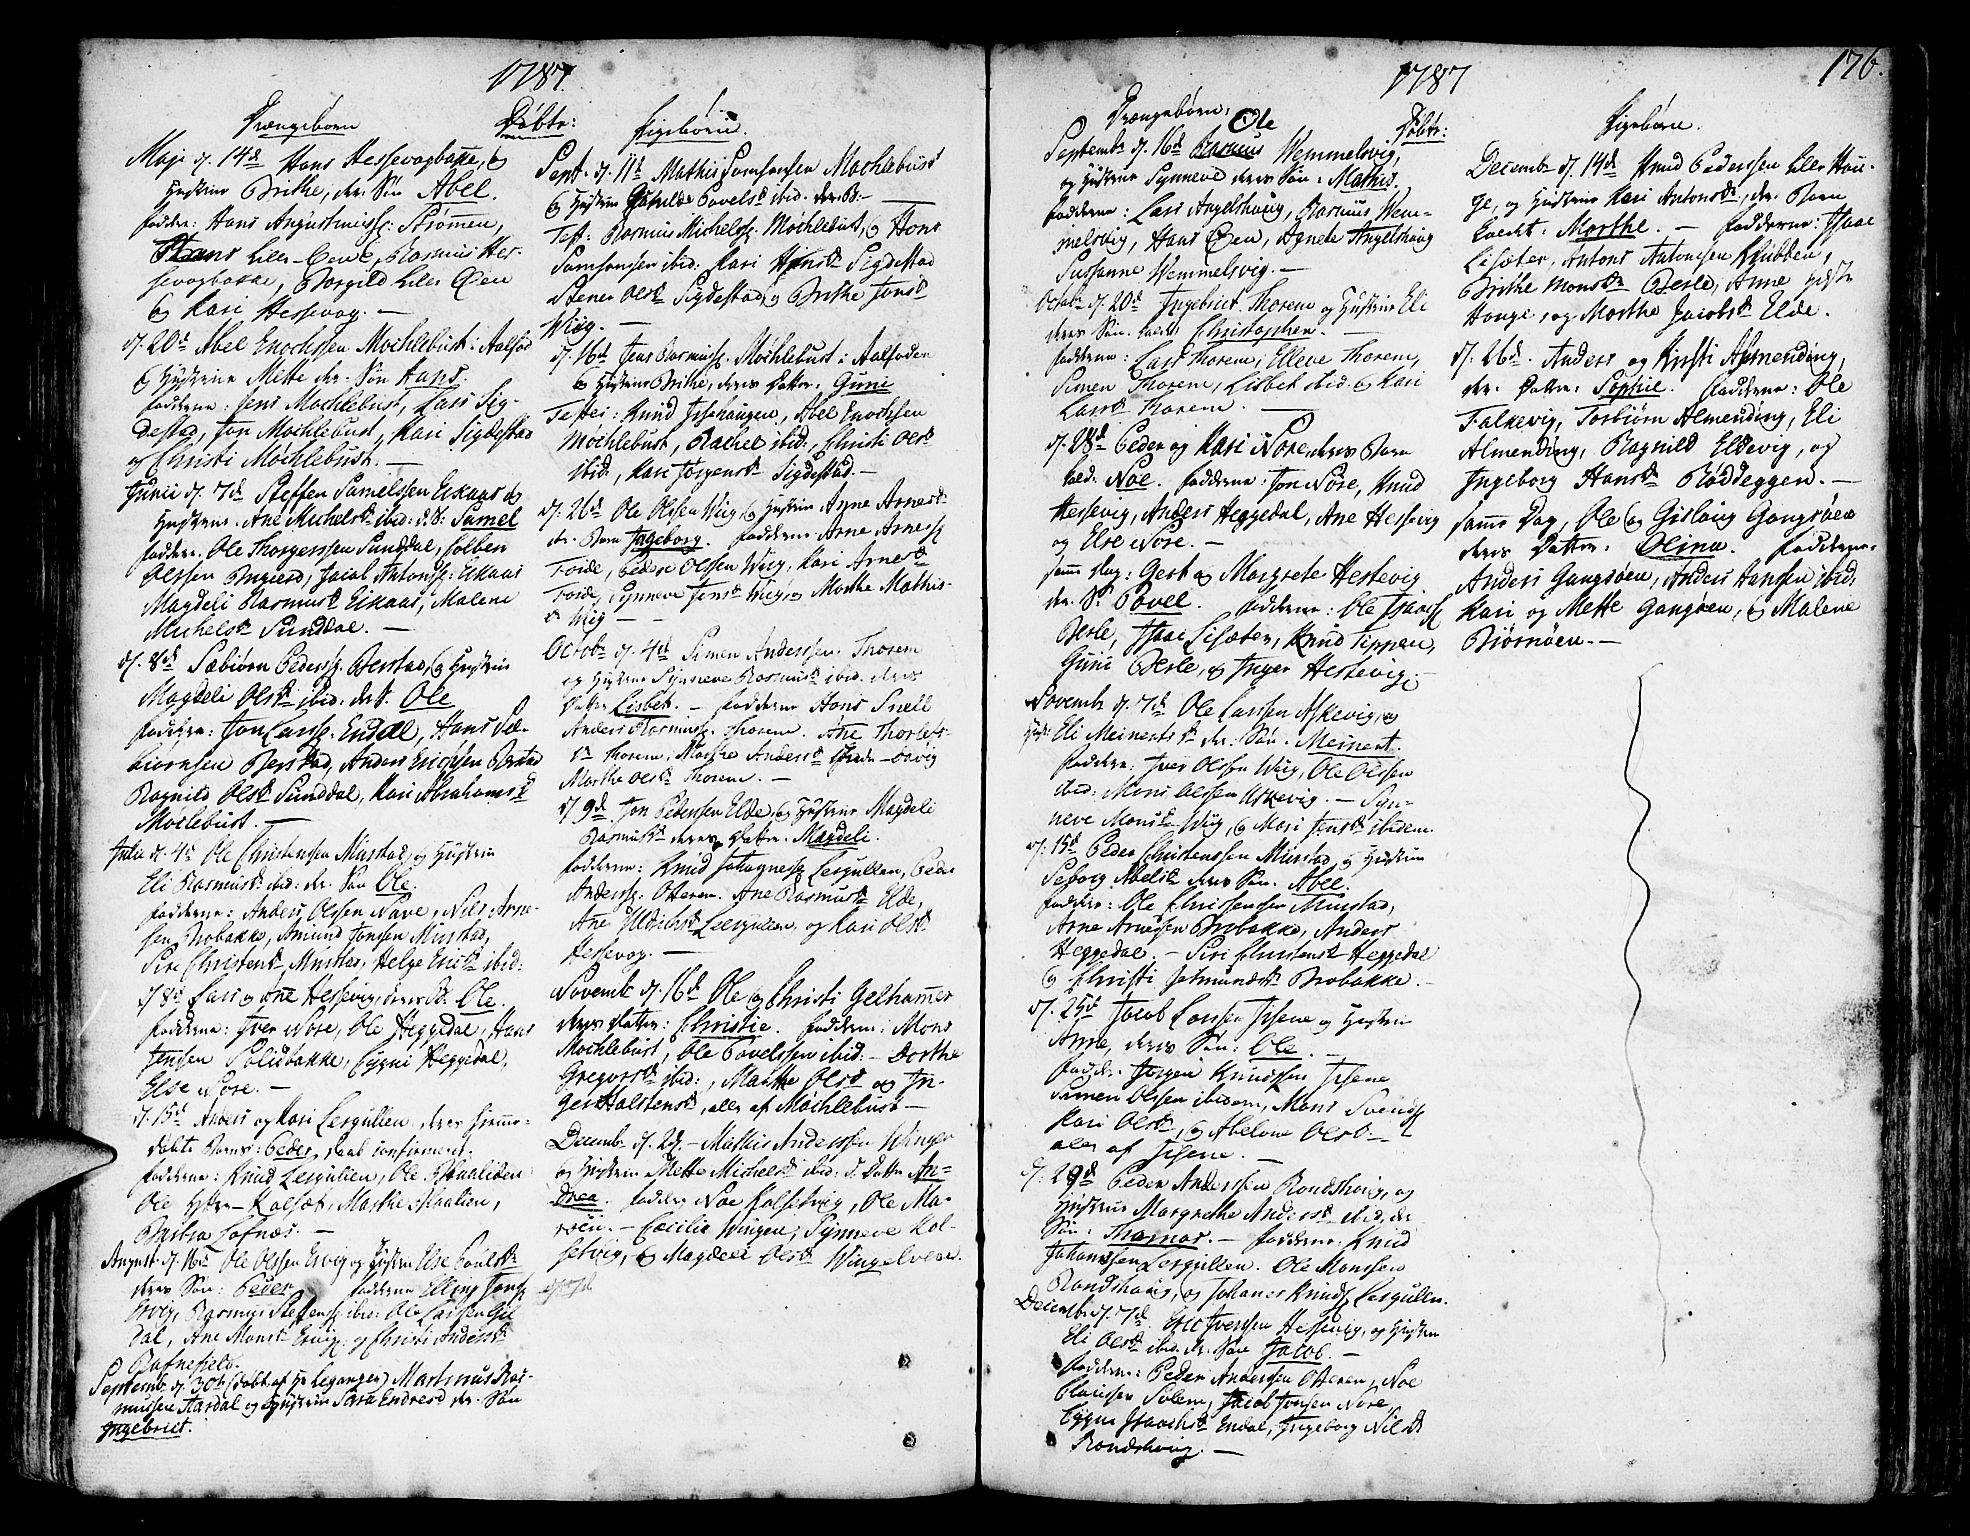 1787.
Drængebørn Døbte:
Maji d. 14de Hans Hessevogbakke, og
Hustrue Brithe, der: Søn Abel.
fadder: Hans Augustinuss: Strømmen,
Hans Lille-Øen, Rasmus Hes-
sevogbakke, Borgild Lille Øen
og Kari Hessevog. —
d. 20de Abel Enochsen Mochlebust i Aalfod
og Hustrue Mette der: Søn Hans.
fadderne: Jens Mochlebust, Lars Sig-
destad, Jon Mochlebust, Kari Sigdestad
og Christi Mochlebust. —
Junii d. 7de Steffen Samelssen Eikaas og
Hustrue Ane Michelsdr ibid: d. S: Samel
faddere. Ole Thorgerssen Sunddal, Colben
Olssen, Jacob Antonss: Eikaas
Magdeli Rasmusdr Eikaas, Malene
Michelsdr Sunddal. —
d. 8de Sæbiørn Pederss: Berstad, og Hustrue
Magdeli Olsdr ibid: der S. Ole
faddere: Jon Larss: Endal, Hans Sæ-
biørnsen Berstad, Anders Erichsen Berstad
Ragnild Olsdr Sunddal, Kari Abrahamsdr
Mochlebust. —
Julii d. 4de Ole Christensen Murstad, og Hustrue
Eli Rasmusdr ibid: der: Søn Ole.
fadderne: Anders Olssen Nave, Nils Arne-
sen Brobakke, Amund Jonsen Murstad,
Siri Christensdr Murstad, Helge Ericsdr ibid:
d. 8de Lars og Ane Hessevig, deres S: Ole.
fadderne: Iver Nore, Ole Heggedal, Hans
Jensen Solidbakke, Eygni Heggedal,
Else Nore. —
d. 15de Anders og Kari Lesgullen, deres hiemme-
døbte Barn: Peder, daab confirmert.
fadderne: Knud Lesgullen, Ole
Ole Kalsæt, Marthe
August d. 16de Ole Olssen Ervig og Hustrue Else Povelsdr
deres Søn: Peder. fadderne Elling Jonss
Ervig, Rasmus Steffenss: ibid: Ole Larssen
dal, Ane Monsdr Ervig, og Christi Andersdr
Septemb: d. 30te (døbt af Hr Leganger) Marthinus Ras-
mussen Aardal og Hustrue Sara Endresd der: Søn
Ingebrict.
Pigebørn.
Sept. d. 11te Mathis Samsonsen Mochlebust
og Hustrue Gunilde Povelsdr ibid. der B: —
Test: Rasmus Michelss: Mochlebust, og Hans
Samsonsen ibid: Kari Hansdr Sigdestad
Stener Olsdr Sigdestad, og Brithe Jonsdr
Wiig. —
d. 16de Jens Rasmuss: Mochlebust i Aalfoden
og Hustrue Brithe, deres Datter: Guni
Testes: Knud Isehaugen, Abel Enochsen
Mochlebust, Rachel ibid:, Christi Olsdr
ibid., Kari Jørgensdr Sigdestad. —
d. 26de Ole Olssen Wiig, og Hustrue Anne Arnesdr
der: Barn Ingeborg. fadderne Arne Arness
Førde, Peder Olssen Wiig, Kari Arnesdr
Førde, Synneve Jensdr Wiig, og Marthe Mathis-
dr Wiig — —
Octobr d. 4de Simen Anderssen Thorem
og Hustrue Synneve Rasmusdr ibid. deres
Datter Lisbet. — fadderne Hans Snell
Anders Rasmuss: Thorem. Ane Thorles-
dr Thorem, Marthe Andersdr
Marthe Olsdr Thorem. —
d. 9de Jon Pedersen Elde, og Hustrue Magdeli
Rasmusdr deres Datter. Magdeli.
fadderne: Knud Johanness: Lesgullen, Peder
Anderss: Otteren. Ane Rasmusdr Elde,
Ane Lesgullen og Kari Olsdr
Hessevog. —
Novemb: d. 16de Ole og Christi Gelhammer
deres Datter: Christie. fadderne: Mons
Mochlebust, Ole Povelssen ibid: — Dorthe
Gregorsdr ibid:, Marthe Olsdr og In-
ger Halstensdr, alle af Mochlebust —
Decemb: d. 2den — Mathis Anderssen Wingen
og Hustrue Mette Michelsdr ibid: d. Datter An-
drea. faddere Noe Kolsetvig, Ole Ma-
røen. — Cecilia Wingen, Synneve Kol-
setvig, og Magdeli Olsdr Wingelven.
1787 176.
Drængebørn, Døbte:
Septembr d. 16de Rasmus Ole Wemmelsvig,
og Hustrue Synneve deres Søn: Mathis.
fadderne: Lars Angelshaug, Rasmus Wem-
melsvig, Hans Øen, Agnete Angelshaug
Sussanne Wemmelsvig. —
Octobr d. 20de Ingebrict Thorem og Hustrue Eli
deres Søn. kaldt Christopher. —
fadderne: Lars Thorem, Elleve Thorem,
Simen Thorem, Lisbet ibid. og Kari
Larsdr Thorem. —
d. 28de Peder og Kari Nore, deres Barn
kald. Noe. fadderne: Jon Nore, Knud
Hessevig, Anders Heggedal, Ane Hessevig
og Else Nore. —
samme dag: Gert og Margrete Hestevig
der: S. Povel. fadderne: Ole Isaacss
Berle, Isaac Lisæter, Knud Tippen,
Guni Berle, og Inger Hestevig. —
Novembr d. 7de Ole Larssen Askevig, og
Hustr: Eli Meinertsdr der: Søn. Meinert.
faddere: Iver Olssen Wiig, Ole Olssen
ibid: Mons Olssen Askevig. — Syn-
neve Monsdr Wiig, og Mari Jensdr ibidem.
d. 15de Peder Christenssen Murstad, og Hustrue
Seborg Abelsdr deres Søn. Abel.
faddere: Ole Christensen Murstad,
Arne Arnessen Brobakke, Anders
Heggedal. — Siri Christensdr Heggedal
og Christi Brobakke. —
d. 25de Jacob Larssen Isene og Hustrue
Anne, deres Søn: Ole. —
fadder. Jørgen Knudssen Isene
Simen Olssen ibidem, Mons Svendss
Kari Olsdr, og Abelone Olsdr —
alle af Isene. —
d. 29de Peder Anderssen Rondshoug, og
Hustrue Margrethe Andersdr ibid, der
Søn: Thomas. — fadderne: Knud
Johanssen Lesgullen. Ole Monssen
Rondshoug, og Johanes Knudss Lesgullen.
Decemb: d. 7de Eric Iverssen Hessevig, og Hustrue
Eli Olsdr ibid. der: Søn Jacob. —
fadderne: Peder Anderssen Otteren, Noe
Clavessen Solem, Jacob Jonsen Nore,
Eygni Isaachsdr Endal, Ingeborg Nilsdr
Rondshoug. —
Pigebørn.
Decembr d. 14de Knud Pederssen Lille Hou-
ge, og Hustrue Kari Antonsdr, der. Barn
kaldt: Marthe. — fadderne: Isaac
Lisæter, Antons Antonssen Klubben,
Brithe Monsdr Berle, Anne
Houge, og Marthe Jacobsdr Elde.
d. 26de. Anders og Kirsti Almending,
der. Datter: Sophie. fadderne: Ole
Falkevig, Torbiørn Almending, Eli
Almending, Ragnild Eldevig, og
Ingeborg Hansdr Røddeggen. —
samme Dag, Ole og Gislaug Gangsøen
deres Datter. Olina. fadderne:
Anders Gangsøen, Anders Hansen ibid:
Kari og Mette Gangsøen, og Malene
Biørnøen. —